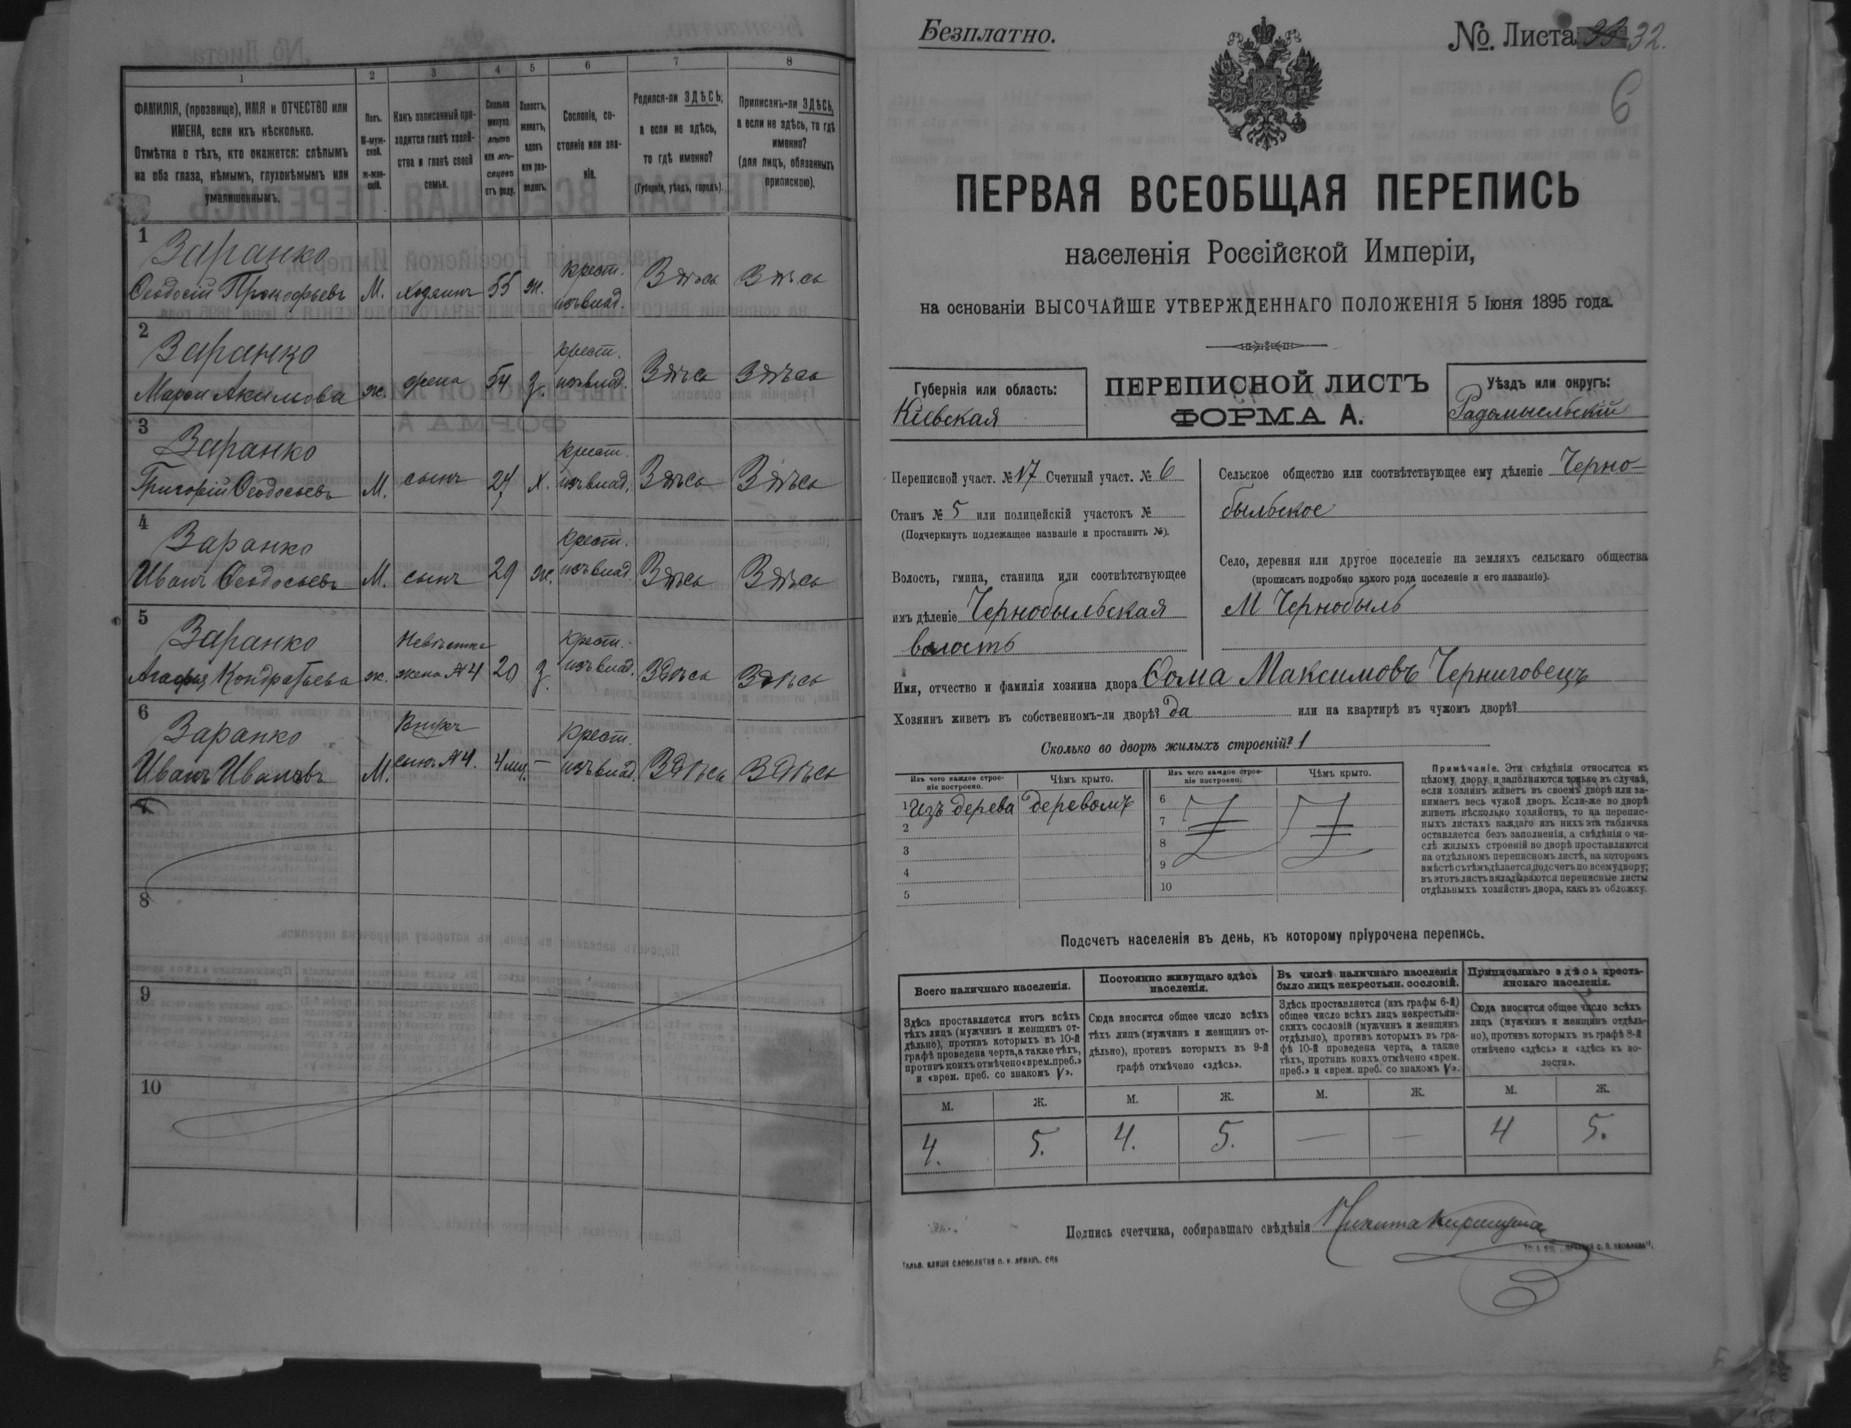 1 2 3 4 5 6 7 8
ФАМИЛІЯ, (прозвище), ИМЯ и ОТЧЕСТВО или
ИМЕНА, если ихъ нѣсколько.
Отмѣтка о тѣхъ, кто окажется: слѣпымъ
на оба глаза, нѣмымъ, глухонѣмымъ или
умалишеннымъ.
Полъ.
М-муж-
ской.
ж-жен-
скій.
Какъ записанный при-
ходится главѣ хозяй-
ства и главѣ своей
семьи.
Сколько
минуло
лѣтъ
или мѣ-
сяцевъ
отъ роду.
Холостъ,
женатъ,
вдовъ
или раз-
веденъ.
Сословіе, со-
стояніе или зва-
ніе.
Родился-ли ЗДѢСЬ,
а если не здѣсь,
то гдѣ именно?
(Губернія, уѣздъ, городъ)
Приписанъ-ли ЗДѢСЬ,
а если не здѣсь, то гдѣ
именно?
(для лицъ, обязанныхъ
припискою).
1
Заранко
Ѳеодосій Прокофьевъ М. хозяинъ 55 ж. крест. изъ влад. Здѣсь Здѣсь
2
Заранко
Марѳа Акимова ж. жена 54 з. крест. изъ влад. Здѣсь Здѣсь
3
Заранко
Григорій Ѳеодосьевъ М. сынъ 24 х. крест. изъ влад. Здѣсь Здѣсь
4
Заранко
Иванъ Ѳеодосьевъ М. сынъ 29 ж. крест. изъ влад. Здѣсь Здѣсь
5
Заранко
Агафья Кондратьева ж. Невѣстка жена №4 20 з. крест. изъ влад. Здѣсь Здѣсь
6
Заранко
Иванъ Ивановъ М. Внукъ сынъ №4. 4 мц. — крест. изъ влад. Здѣсь Здѣсь
7
8
9
10
Безплатно.
№. Листа 32.
6
ПЕРВАЯ ВСЕОБЩАЯ ПЕРЕПИСЬ
населенія Россійской Имперіи,
на основаніи ВЫСОЧАЙШЕ УТВЕРЖДЕННАГО ПОЛОЖЕНІЯ 5 Іюня 1895 года.
Губернія или область:
Кіевская
ПЕРЕПИСНОЙ ЛИСТЪ
ФОРМА А.
Уѣздъ или округъ:
Радомысльскій
Переписной участ. № 17 Счетный участ. № 6
Станъ № 5 или полицейскій участокъ №
(Подчеркнуть подлежащее названіе и проставить №).
Волость, гмина, станица или соотвѣтствующее
имъ дѣленіе Чернобыльская
волость
Сельское общество или соотвѣтствующее ему дѣленіе Черно-
быльское
Село, деревня или другое поселеніе на земляхъ сельскаго общества
(прописать подробно какого рода поселеніе и его названіе).
М Чернобыль
Имя, отчество и фамилія хозяина двора Ѳома Максимовъ Черниговецъ
Хозяинъ живетъ въ собственномъ-ли дворѣ? да или на квартирѣ въ чужомъ дворѣ?
Сколько во дворѣ жилыхъ строеній? 1
Изъ чего каждое строе-
ніе построено.
Чѣмъ крыто.
Изъ чего каждое строе-
ніе построено.
Чѣмъ крыто.
1 Изъ дерева деревомъ 6
2 7
3 8
4 9
5 10
Примѣчаніе. Эти свѣдѣнія относятся къ
цѣлому двору и заполняются только въ случаѣ,
если хозяинъ живетъ въ своемъ дворѣ или за-
нимаетъ весь чужой дворъ. Если-же во дворѣ
живетъ нѣсколько хозяйствъ, то на перепис-
ныхъ листахъ каждаго изъ нихъ эта табличка
оставляется безъ заполненія, а свѣдѣнія о чи-
слѣ жилыхъ строеній во дворѣ проставляются
на отдѣльномъ переписномъ листѣ, на которомъ
вмѣстѣ съ тѣмъ дѣлается подсчетъ по всему двору;
въ этотъ листъ вкладываются переписные листы
отдѣльныхъ хозяйствъ двора, какъ въ обложку.
Подсчетъ населенія въ день, къ которому пріурочена перепись.
Всего наличнаго населенія.
Постоянно живущаго здѣсь
населенія.
Въ числѣ наличнаго населенія
было лицъ некрестьян. сословій.
Приписаннаго здѣсь кресть-
янскаго населенія.
Здѣсь проставляется итогъ всѣхъ
тѣхъ лицъ (мужчинъ и женщинъ от-
дѣльно), противъ которыхъ въ 10-й
графѣ проведена черта, а также тѣхъ,
противъ коихъ отмѣчено «врем. преб.»
и «врем. преб. со знакомъ V».
Сюда вносится общее число всѣхъ
тѣхъ лицъ (мужчинъ и женщинъ от-
дѣльно), противъ которыхъ въ 9-й
графѣ отмѣчено «здѣсь».
Здѣсь проставляется (изъ графы 6-й)
общее число всѣхъ лицъ некрестьян-
скихъ сословій (мужчинъ и женщинъ
отдѣльно), противъ которыхъ въ гра-
фѣ 10-й проведена черта, а также
тѣхъ, противъ коихъ отмѣчено «врем.
преб.» и «врем. преб. со знакомъ V».
Сюда вносится общее число всѣхъ
лицъ (мужчинъ и женщинъ отдѣль-
но), противъ которыхъ въ графѣ 8-й
отмѣчено «здѣсь» и «здѣсь въ во-
лости».
М. Ж. М. Ж. М. Ж. М. Ж.
4. 5. 4. 5. — — 4 5.
Подпись счетчика, собиравшаго свѣдѣнія Никита